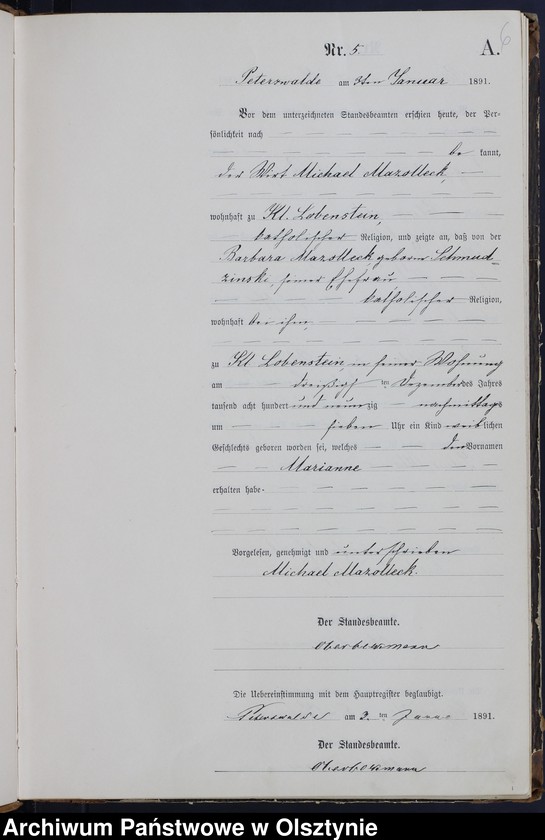 6
Nr. 5. A.
Peterswalde am 3ten Januar 1891.
Vor dem unterzeichneten Standesbeamten erschien heute, der Per-
sönlichkeit nach
be kannt,
der Wirt Michael Mazolleck,
wohnhaft zu Kl. Lobenstein,
katholischer Religion, und zeigte an, daß von der
Barbara Mazolleck, geboren Schmud-
zinski, seiner Ehefrau
katholischer Religion,
wohnhaft bei ihm,
zu Kl Lobenstein, in seiner Wohnung
am dreißigsten Dezember des Jahres
tausend acht hundert und neunzig nachmittags
um sieben Uhr ein Kind weiblichen
Geschlechts geboren worden sei, welches den Vornamen
Marianne
erhalten habe.
Vorgelesen, genehmigt und unterschrieben
Michael Mazolleck.
Der Standesbeamte.
Die Uebereinstimmung mit dem Hauptregister beglaubigt.
Peterswalde am 3. ten Januar 1891.
Der Standesbeamte.
Archiwum Państwowe w Olsztynie